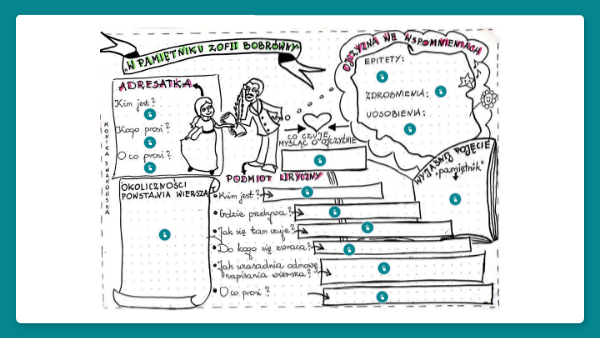 W PAMIĘTNIKU ZOFII BOBRÓWNY
OJCZYZNA WE WSPOMNIENIACH
EPITETY:
ZDROBNIENIA:
UOSOBIENIA:
ADRESATKA
Kim jest?
Kogo prosi?
O co prosi?
CO CZUJE,
MYŚLĄC O OJCZYŹNIE
WYJAŚNIJ POJĘCIE
"pamiętnik"
OKOLICZNOŚCI
POWSTANIA WIERSZA
PODMIOT LIRYCZNY
Kim jest?
Gdzie przebywa?
Jak się tam czuje?
Do kogo się zwraca?
Jak uzasadnia odmowę
napisania wiersza?
O co prosi?
MONIKA IWANOWSKA